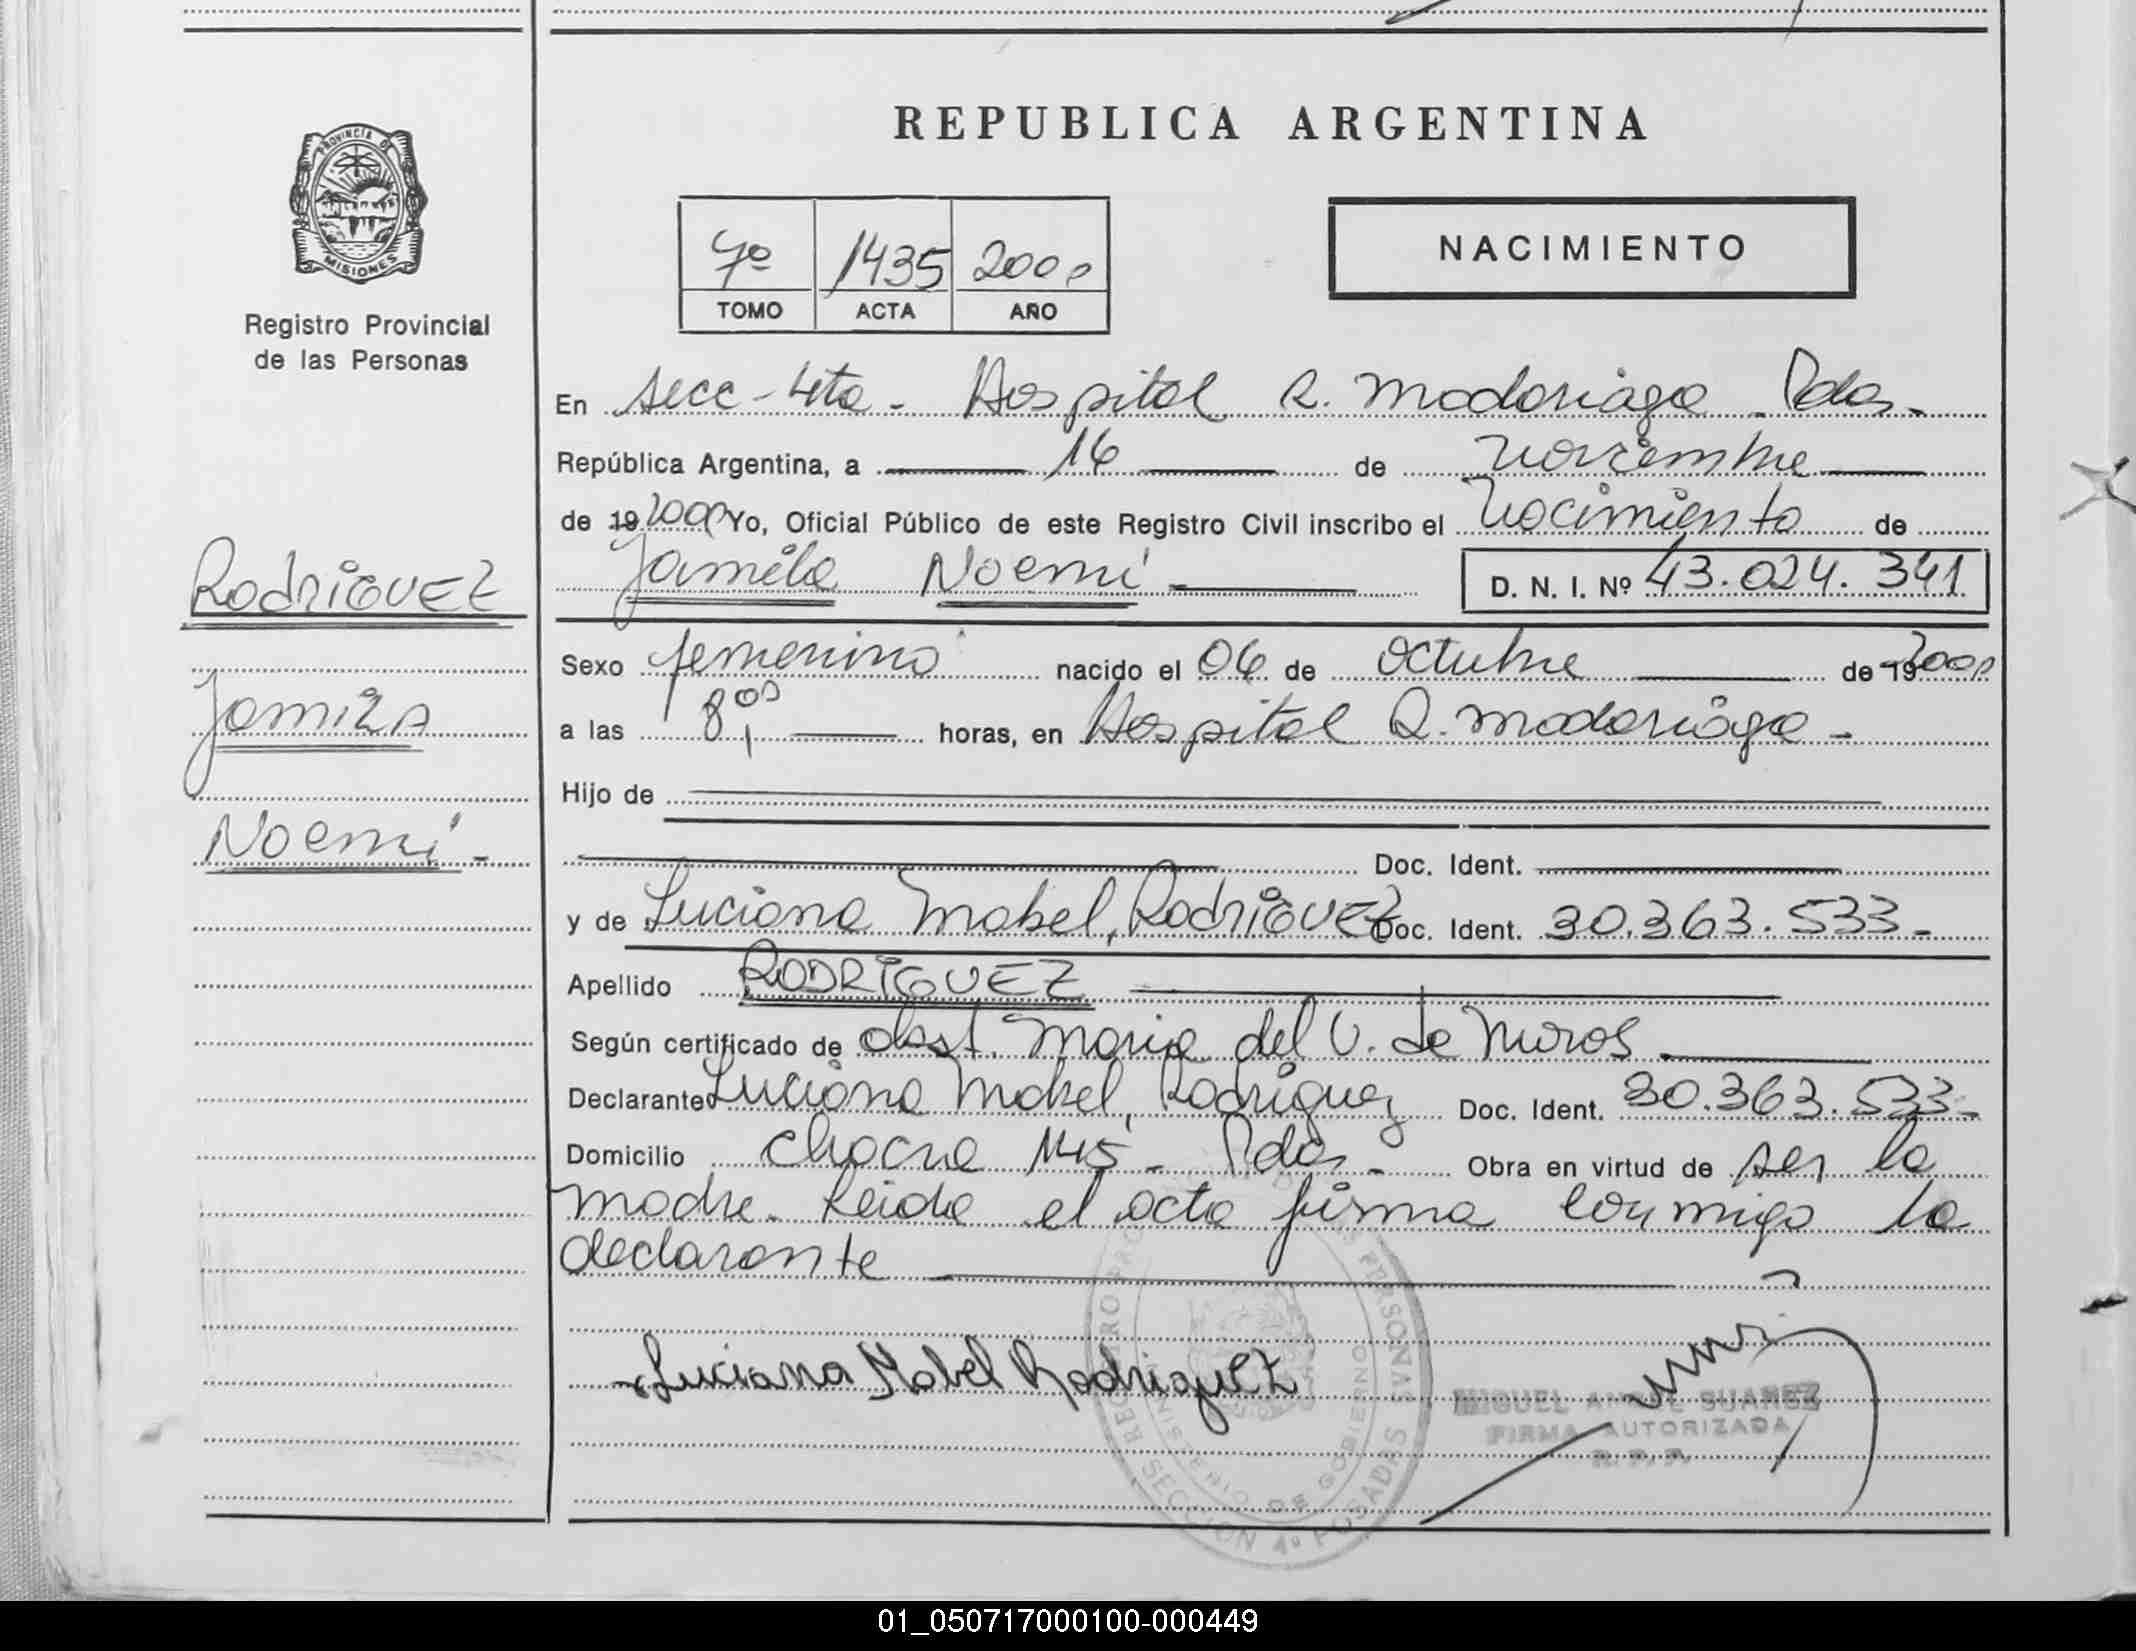 REPUBLICA ARGENTINA
PROVINCIA DE
MISIONES
Registro Provincial
de las Personas
7º 1435 2000
TOMO ACTA AÑO
NACIMIENTO
En secc - 4ta - Hospital R. Madariaga - Pdas -
República Argentina, a 16 de noviembre
de 19 2000 Yo, Oficial Público de este Registro Civil inscribo el Nacimiento de
Jamila Noemí D. N. I. Nº 43.024.341
Rodriguez
Jamila
Noemí -
Sexo femenino nacido el 06 de octubre de 19 2000
a las 8,00 horas, en Hospital R. Madariaga -
Hijo de
Doc. Ident.
y de Luciana Mabel, Rodriguez Doc. Ident. 30.363.533 -
Apellido RODRIGUEZ
Según certificado de obst. Maria del V. de
Declarante Luciana Mabel, Rodriguez Doc. Ident. 30.363.533 -
Domicilio chacra 145 - Pdas - Obra en virtud de ser la
madre. Leida el acta firma conmigo la
declarante
Luciana Mabel Rodriguez
MIGUEL ANGEL SUAREZ
FIRMA AUTORIZADA
R. P. P.
REGISTRO PROVINCIAL DE LAS PERSONAS
MINISTERIO DE GOBIERNO
SECCION 4º POSADAS
01_050717000100-000449